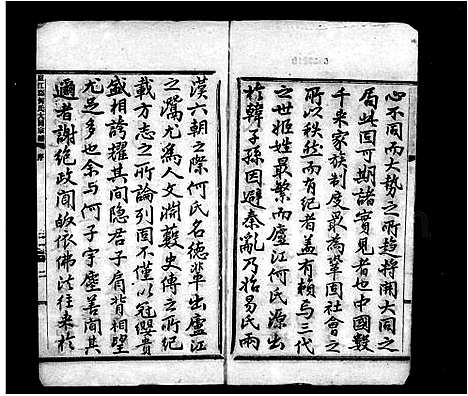 心不同而大勢之所趋將開大同之
局此固可期諸實見者也中國數
千来家族制度最為鞏固社會之
所以秩然而有紀者盖有赖与三代
之世姬姓最繁而廬江何氏源出
於韓子孫因避秦亂乃指易氏而
漢六朝之際何氏名德輩出廬江
之灊尤為人文淵藪史傳之所紀
載方志之所論列固不僅以冠纓貴
盛相誇耀其間隐君子肩背相望
尤足多也余与何子宇塵善间其
邇者謝绝政间皈依佛法往来於
廬江郡何氏大同宗譜 序